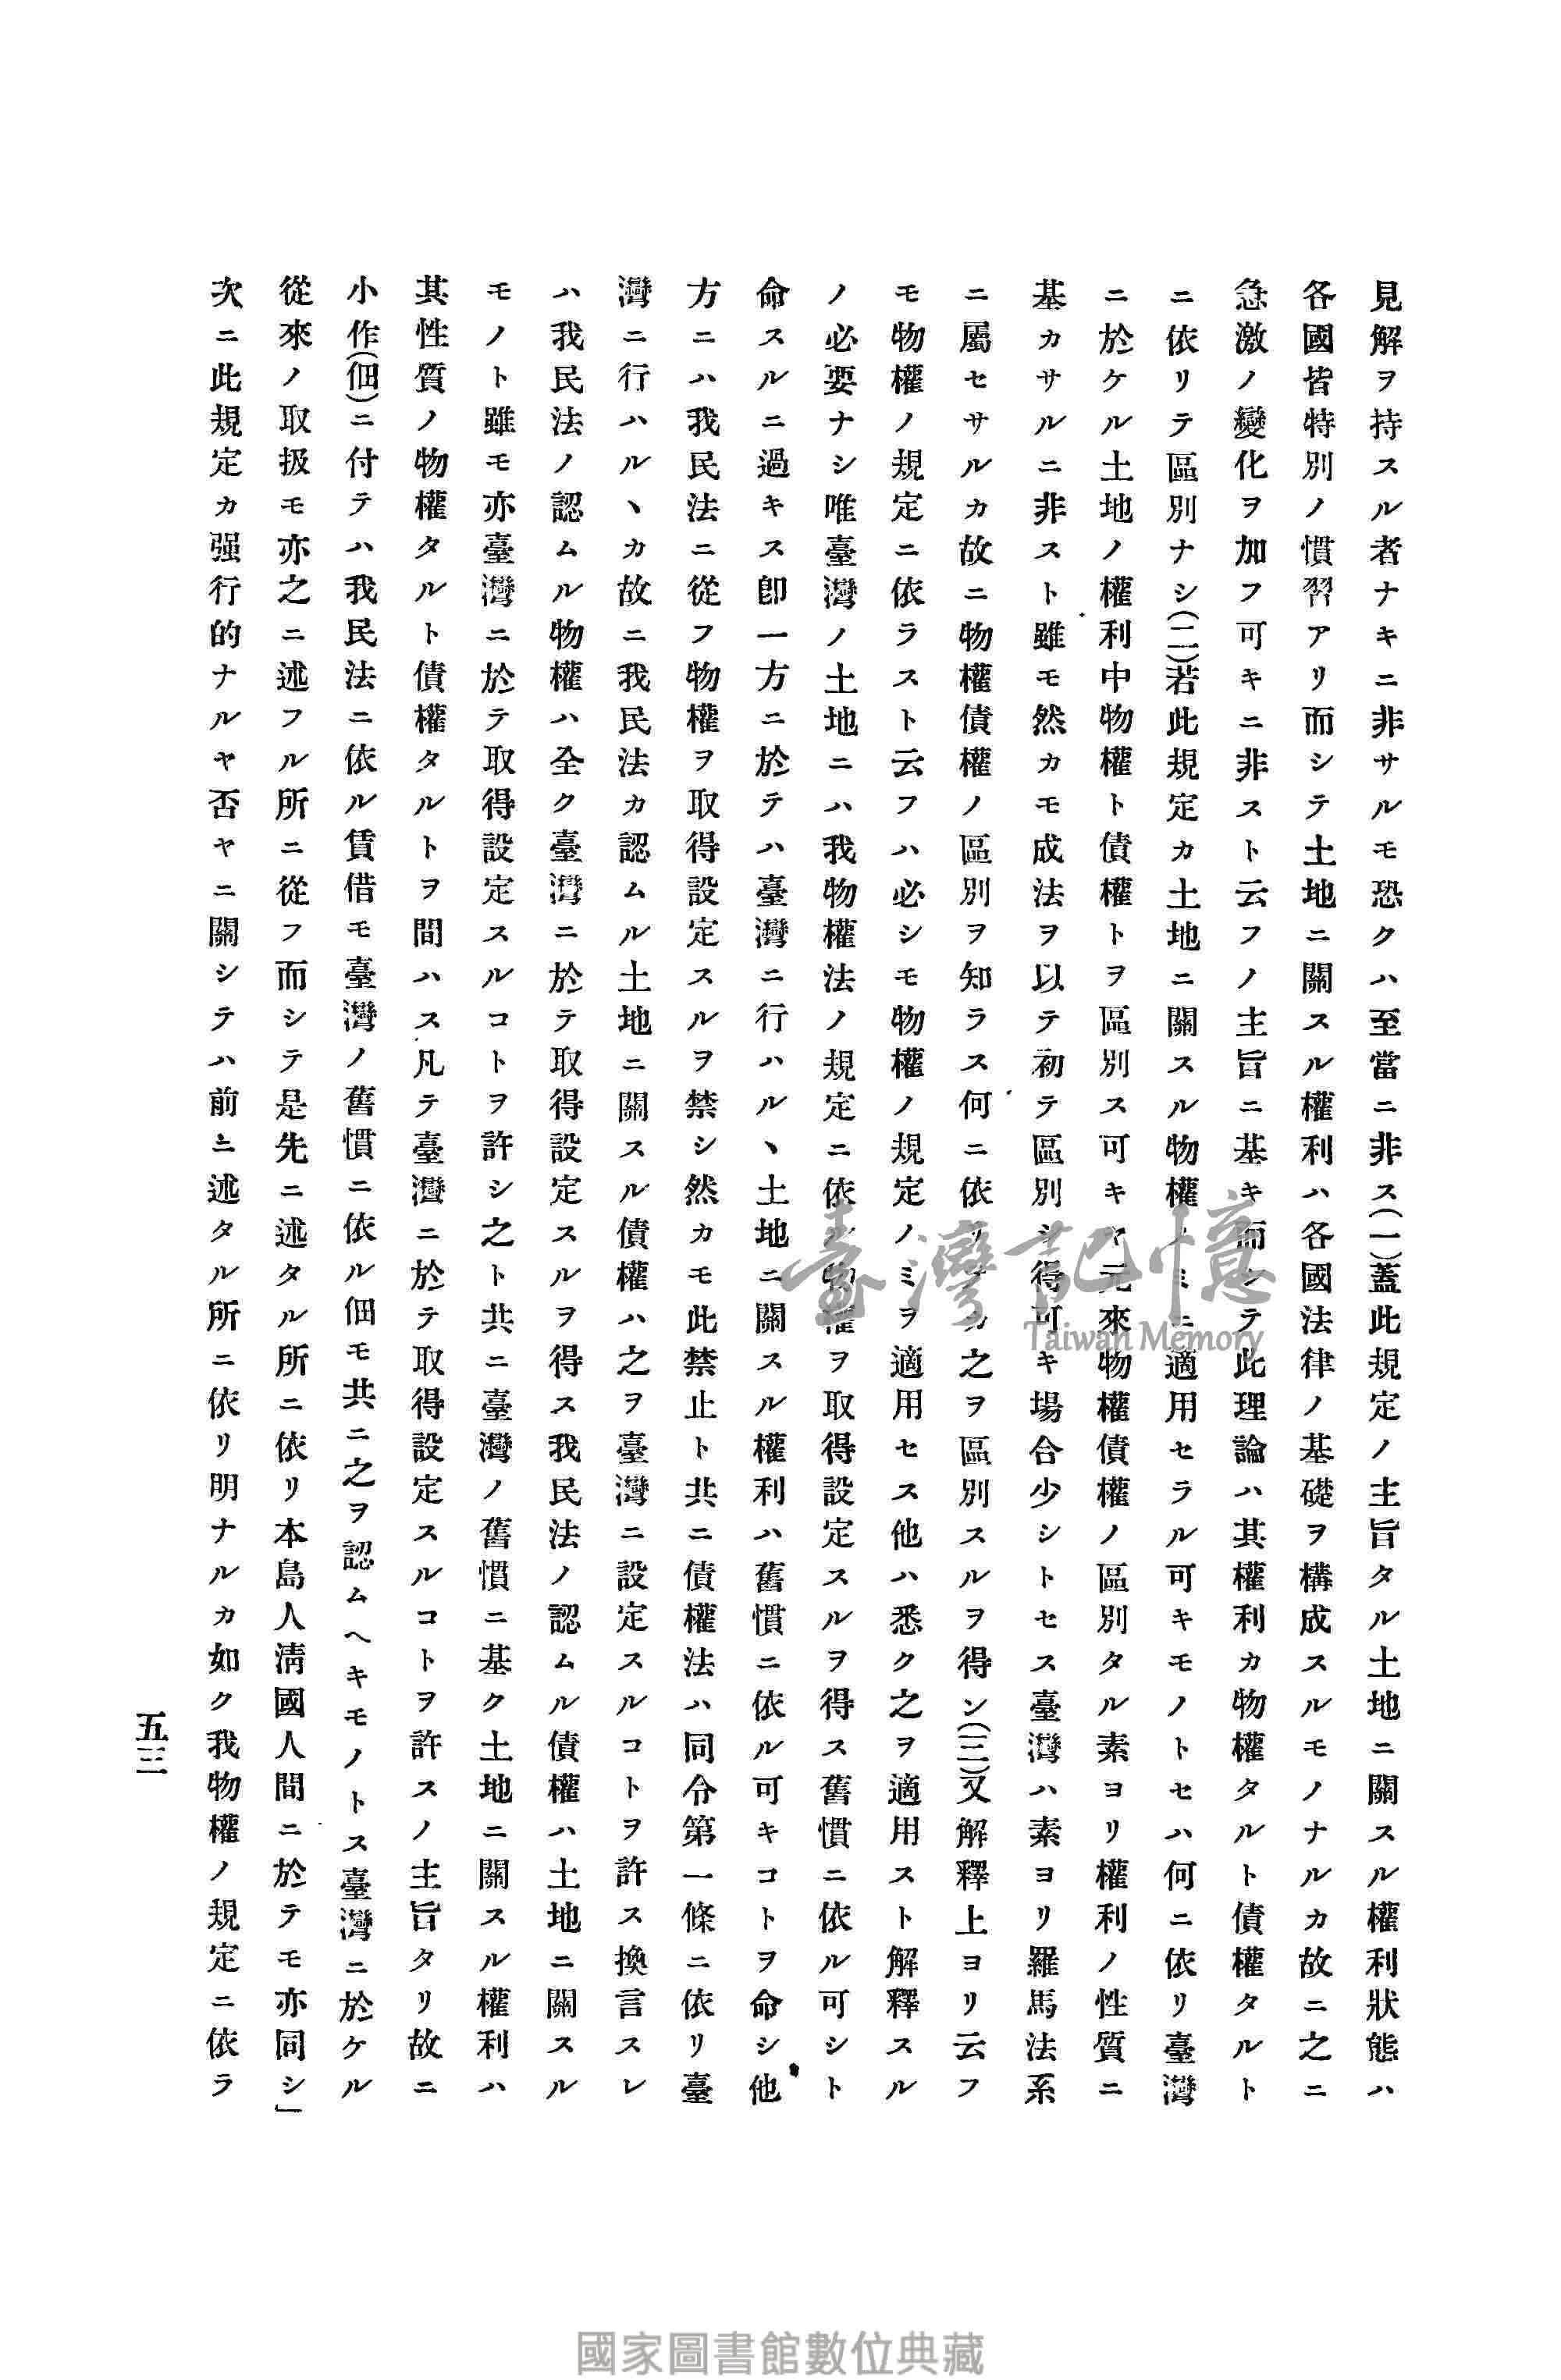 見解ヲ持スル者ナキニ非サルモ恐クハ至當ニ非ス(一)蓋此規定ノ主旨タル土地ニ關スル權利狀態ハ
各國皆特別ノ慣習アリ而シテ土地ニ關スル權利ハ各國法律ノ基礎ヲ構成スルモノナルカ故ニ之ニ
急激ノ變化ヲ加フ可キニ非スト云フノ主旨ニ基キ而シテ此理論ハ其權利カ物權タルト債權タルト
ニ依リテ區別ナシ(二)若此規定カ土地ニ關スル物權ノミニ適用セラル可キモノトセハ何ニ依リ臺灣
ニ於ケル土地ノ權利中物權ト債權トヲ區別ス可キヤ元來物權債權ノ區別タル素ヨリ權利ノ性質ニ
基カサルニ非スト雖モ然カモ成法ヲ以テ初テ區別シ得可キ場合少シトセス臺灣ハ素ヨリ羅馬法系
ニ屬セサルカ故ニ物權債權ノ區別ヲ知ラス何ニ依リテカ之ヲ區別スルヲ得ン(三)又解釋上ヨリ云フ
モ物權ノ規定ニ依ラスト云フハ必シモ物權ノ規定ノミヲ適用セス他ハ悉ク之ヲ適用スト解釋スル
ノ必要ナシ唯臺灣ノ土地ニハ我物權法ノ規定ニ依ル物權ヲ取得設定スルヲ得ス舊慣ニ依ル可シト
命スルニ過キス卽一方ニ於テハ臺灣ニ行ハルヽ土地ニ關スル權利ハ舊慣ニ依ル可キコトヲ命シ他
方ニハ我民法ニ從フ物權ヲ取得設定スルヲ禁シ然カモ此禁止ト共ニ債權法ハ同令第一條ニ依リ臺
灣ニ行ハルヽカ故ニ我民法カ認ムル土地ニ關スル債權ハ之ヲ臺灣ニ設定スルコトヲ許ス換言スレ
ハ我民法ノ認ムル物權ハ全ク臺灣ニ於テ取得設定スルヲ得ス我民法ノ認ムル債權ハ土地ニ關スル
モノト雖モ亦臺灣ニ於テ取得設定スルコトヲ許シ之ト共ニ臺灣ノ舊慣ニ基ク土地ニ關スル權利ハ
其性質ノ物權タルト債權タルトヲ間ハス凡テ臺灣ニ於テ取得設定スルコトヲ許スノ主旨タリ故ニ
小作(佃)ニ付テハ我民法ニ依ル賃借モ臺灣ノ舊慣ニ依ル佃モ共ニ之ヲ認ムヘキモノトス臺灣ニ於ケル
從來ノ取扱モ亦之ニ述フル所ニ從フ而シテ是先ニ述タル所ニ依リ本島人淸國人間ニ於テモ亦同シ」
次ニ此規定カ强行的ナルヤ否ヤニ關シテハ前ニ述タル所ニ依リ明ナルカ如ク我物權ノ規定ニ依ラ
五三
臺灣記憶
Taiwan Memory
國家圖書館數位典藏